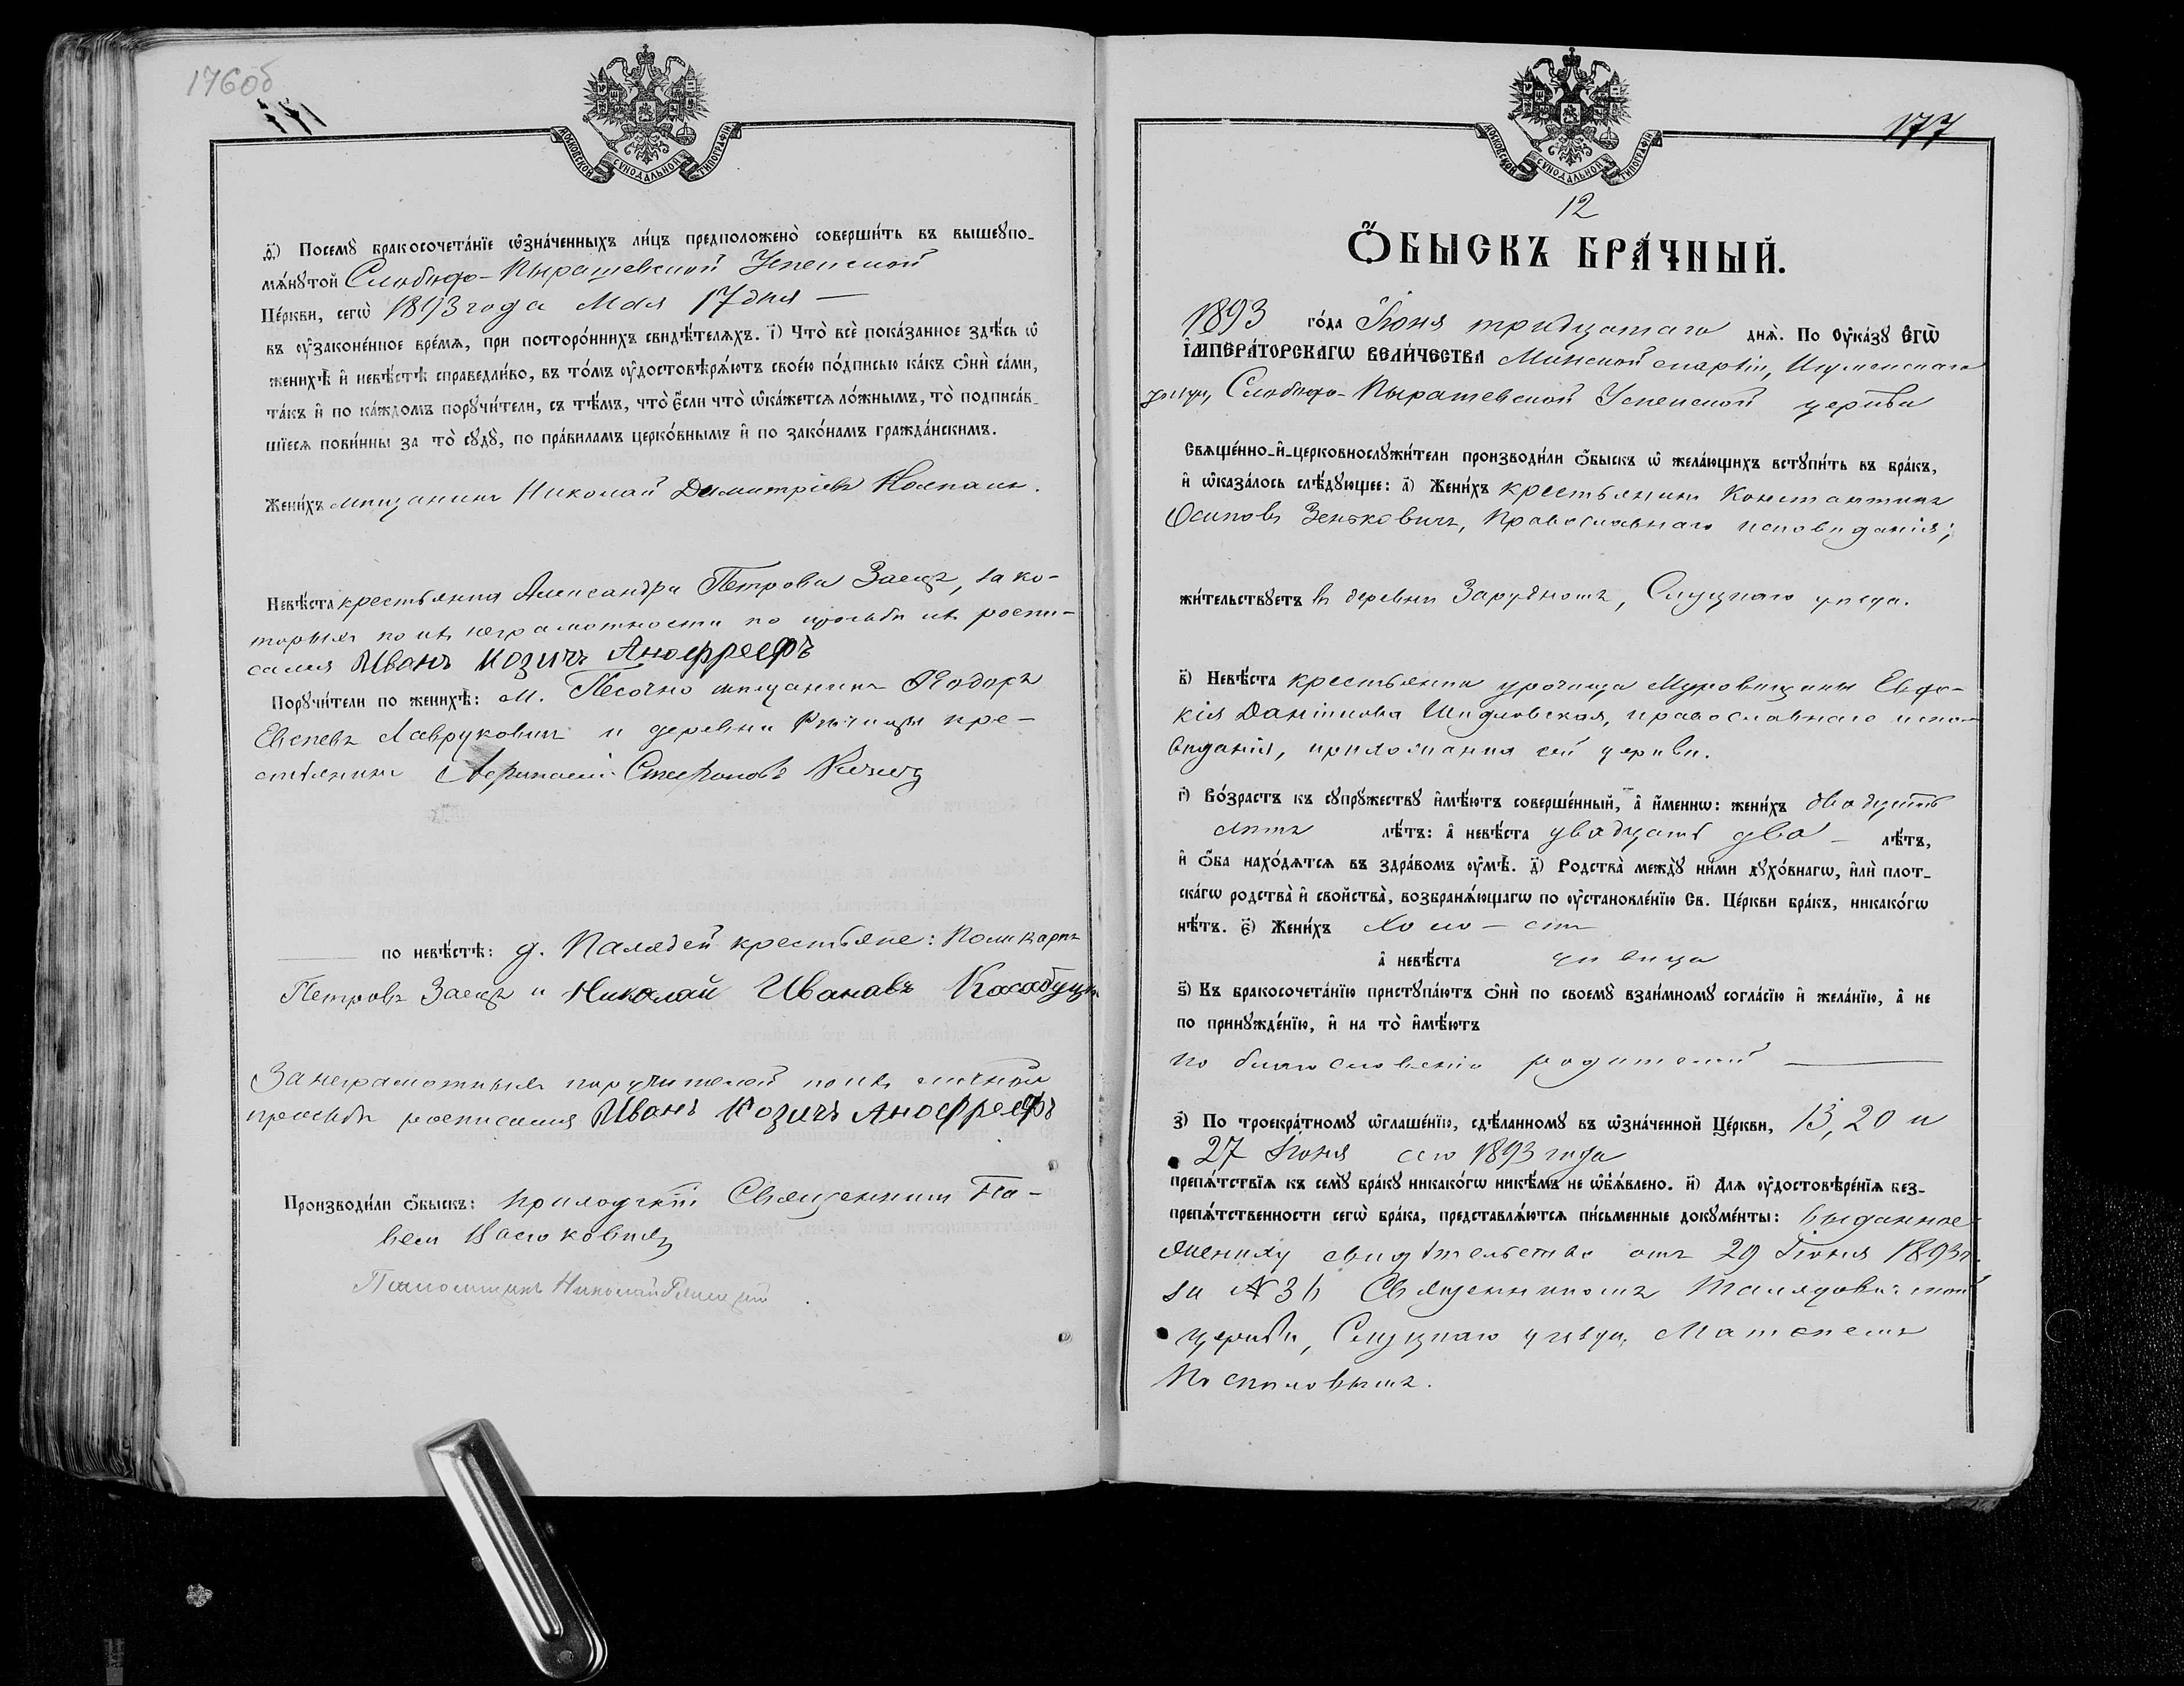 176об
МОСКОВСКОЙ СѴНОДАЛЬНОЙ ТИПОГРАФІИ
ѳ) Посемꙋ бракосочета́нїе ѡ҆зна́ченныхъ ли́цъ предположено̀ соверши́ть въ вышеꙋпо-
мѧ́нꙋтой Слободо-Пырашевской Успенской
Це́ркви, сегѡ̀ 1893 года Мая 17 дня —
въ ᲂу҆законе́нное вре́мѧ, при посторо́ннихъ свидѣ́телѧхъ. і҃) Что̀ всѐ пока́занное здѣ́сь ѡ҆
женихѣ̀ и҆ невѣ́стѣ справедли́во, въ то́мъ ᲂу҆достовѣрѧ́ютъ свое́ю по́дписью ка́къ ѻ҆нѝ са́ми,
та́къ и҆ по ка́ждомъ порꙋчи́тели, съ тѣ́мъ, что̀ є҆́сли что̀ ѡ҆ка́жетсѧ ло́жнымъ, то̀ подписа́в-
шїесѧ пови́нны за то̀ сꙋдꙋ̀, по пра́виламъ церко́внымъ и҆ по зако́намъ гражда́нскимъ.
Жени́хъ мѣщанинъ Николай Димитріевъ Колпакъ.
Невѣ́ста крестьянка Александра Петрова Заецъ, за ко-
торыхъ по их неграмотности по просьбѣ их роспи-
сался Иванъ Козичъ Анофреефъ
Порꙋчи́тели по женихѣ̀: м. Песочно мѣщанинъ Ѳеодоръ
Евсеевъ Лавруковичъ и деревни кре-
стьянинъ Стефановъ
по невѣ́стѣ: д. Палядей крестьяне: Поликарпъ
Петровъ Заецъ и Николай Иванавъ
За неграмотныхъ поручителей по их личной
просьбѣ росписался Иванъ Козичъ Анофреефъ
Производи́ли ѻ҆́быскъ: приходскій Священникъ Па-
велъ
Псаломщикъ Николай
177
МОСКОВСКОЙ СѴНОДАЛЬНОЙ ТИПОГРАФІИ
12
Ѻ҆́БЫСКЪ БРА́ЧНЫЙ.
1893 го́да Іюня тридцатаго днѧ̀. По Оу҆ка́зꙋ Є҆гѡ̀
І҆МПЕРА́ТОРСКАГѠ ВЕЛИ́ЧЕСТВА Минской епархіи, Игуменскаго
уѣзда, Слободо-Пырашевской Успенской церкви
Свѧще́нно-и҆-церковнослꙋжи́тели производи́ли ѻ҆́быскъ ѡ҆ жела́ющихъ встꙋпи́ть въ бра́къ,
и҆ ѡ҆каза́лось слѣ́дꙋющее: а҃) Жени́хъ крестьянинъ Константинъ
Осиповъ Зеньковичъ, Православнаго исповѣданія;
жи́тельствꙋетъ въ деревни Зарудномъ, Слуцкаго уѣзда.
в҃) Невѣ́ста крестьянка урочища Муровщины Евдо-
кія Даніилова Шидловская, православнаго испо-
вѣданія, прихожанка сей церкви.
г҃) Во́зрастъ къ сꙋпрꙋ́жествꙋ и҆мѣ́ютъ соверше́нный, а҆ и҆́меннѡ: жени́хъ двадцать
пять лѣ́тъ: а҆ невѣ́ста двадцать два — лѣ́тъ,
и҆ ѻ҆́ба нахо́дѧтсѧ въ здра́вомъ ᲂу҆мѣ̀. д҃) Родства̀ междꙋ̀ ни́ми дꙋхо́внагѡ, и҆лѝ плот-
ска́гѡ родства̀ и҆ свойства̀, возбранѧ́ющагѡ по ᲂу҆становле́нїю Св. Це́ркви бра́къ, никако́гѡ
нѣ́тъ. є҃) Жени́хъ холо-стъ
а҆ невѣ́ста дѣвица
ѕ҃) Къ бракосочета́нїю пристꙋпа́ютъ ѻ҆нѝ по своемꙋ̀ взаи́мномꙋ согла́сїю и҆ жела́нїю, а҆ не
по принꙋжде́нїю, и҆ на то̀ и҆мѣ́ютъ
по благословенію родителей —
з҃) По троекра́тномꙋ ѡ҆глаше́нїю, сдѣ́ланномꙋ въ ѡ҆зна́ченной Це́ркви, 13, 20 и
27 Іюня сего 1893 года
препѧ́тствїѧ къ семꙋ̀ бра́кꙋ никако́гѡ никѣ́мъ не ѡ҆б̾ѧ́влено. и҃) Длѧ ᲂу҆достовѣре́нїѧ без-
препѧ́тственности сегѡ̀ бра́ка, представлѧ́ютсѧ пи́сьменные докꙋме́нты: выданное
жениху свидѣтельство отъ 29 Іюня 1893 г.
за № 36 Священникомъ
церкви, Слуцкаго уѣзда, Матѳеемъ